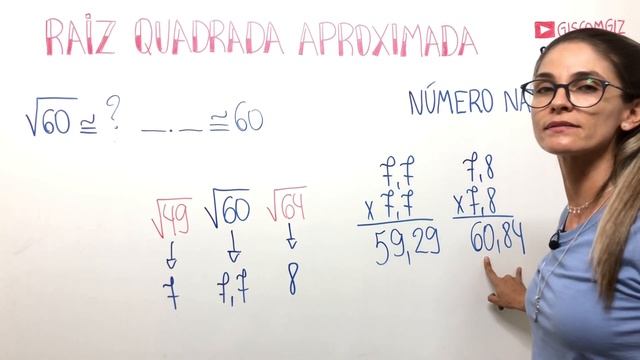 RAIZ QUADRADA APROXIMADA
GISCOMGIZ
√60 ≅ ? __.__ ≅ 60
NÚMERO
√49 √60 √64
7 7,7 8
7,7
x 7,7
59,29
7,8
x 7,8
60,84